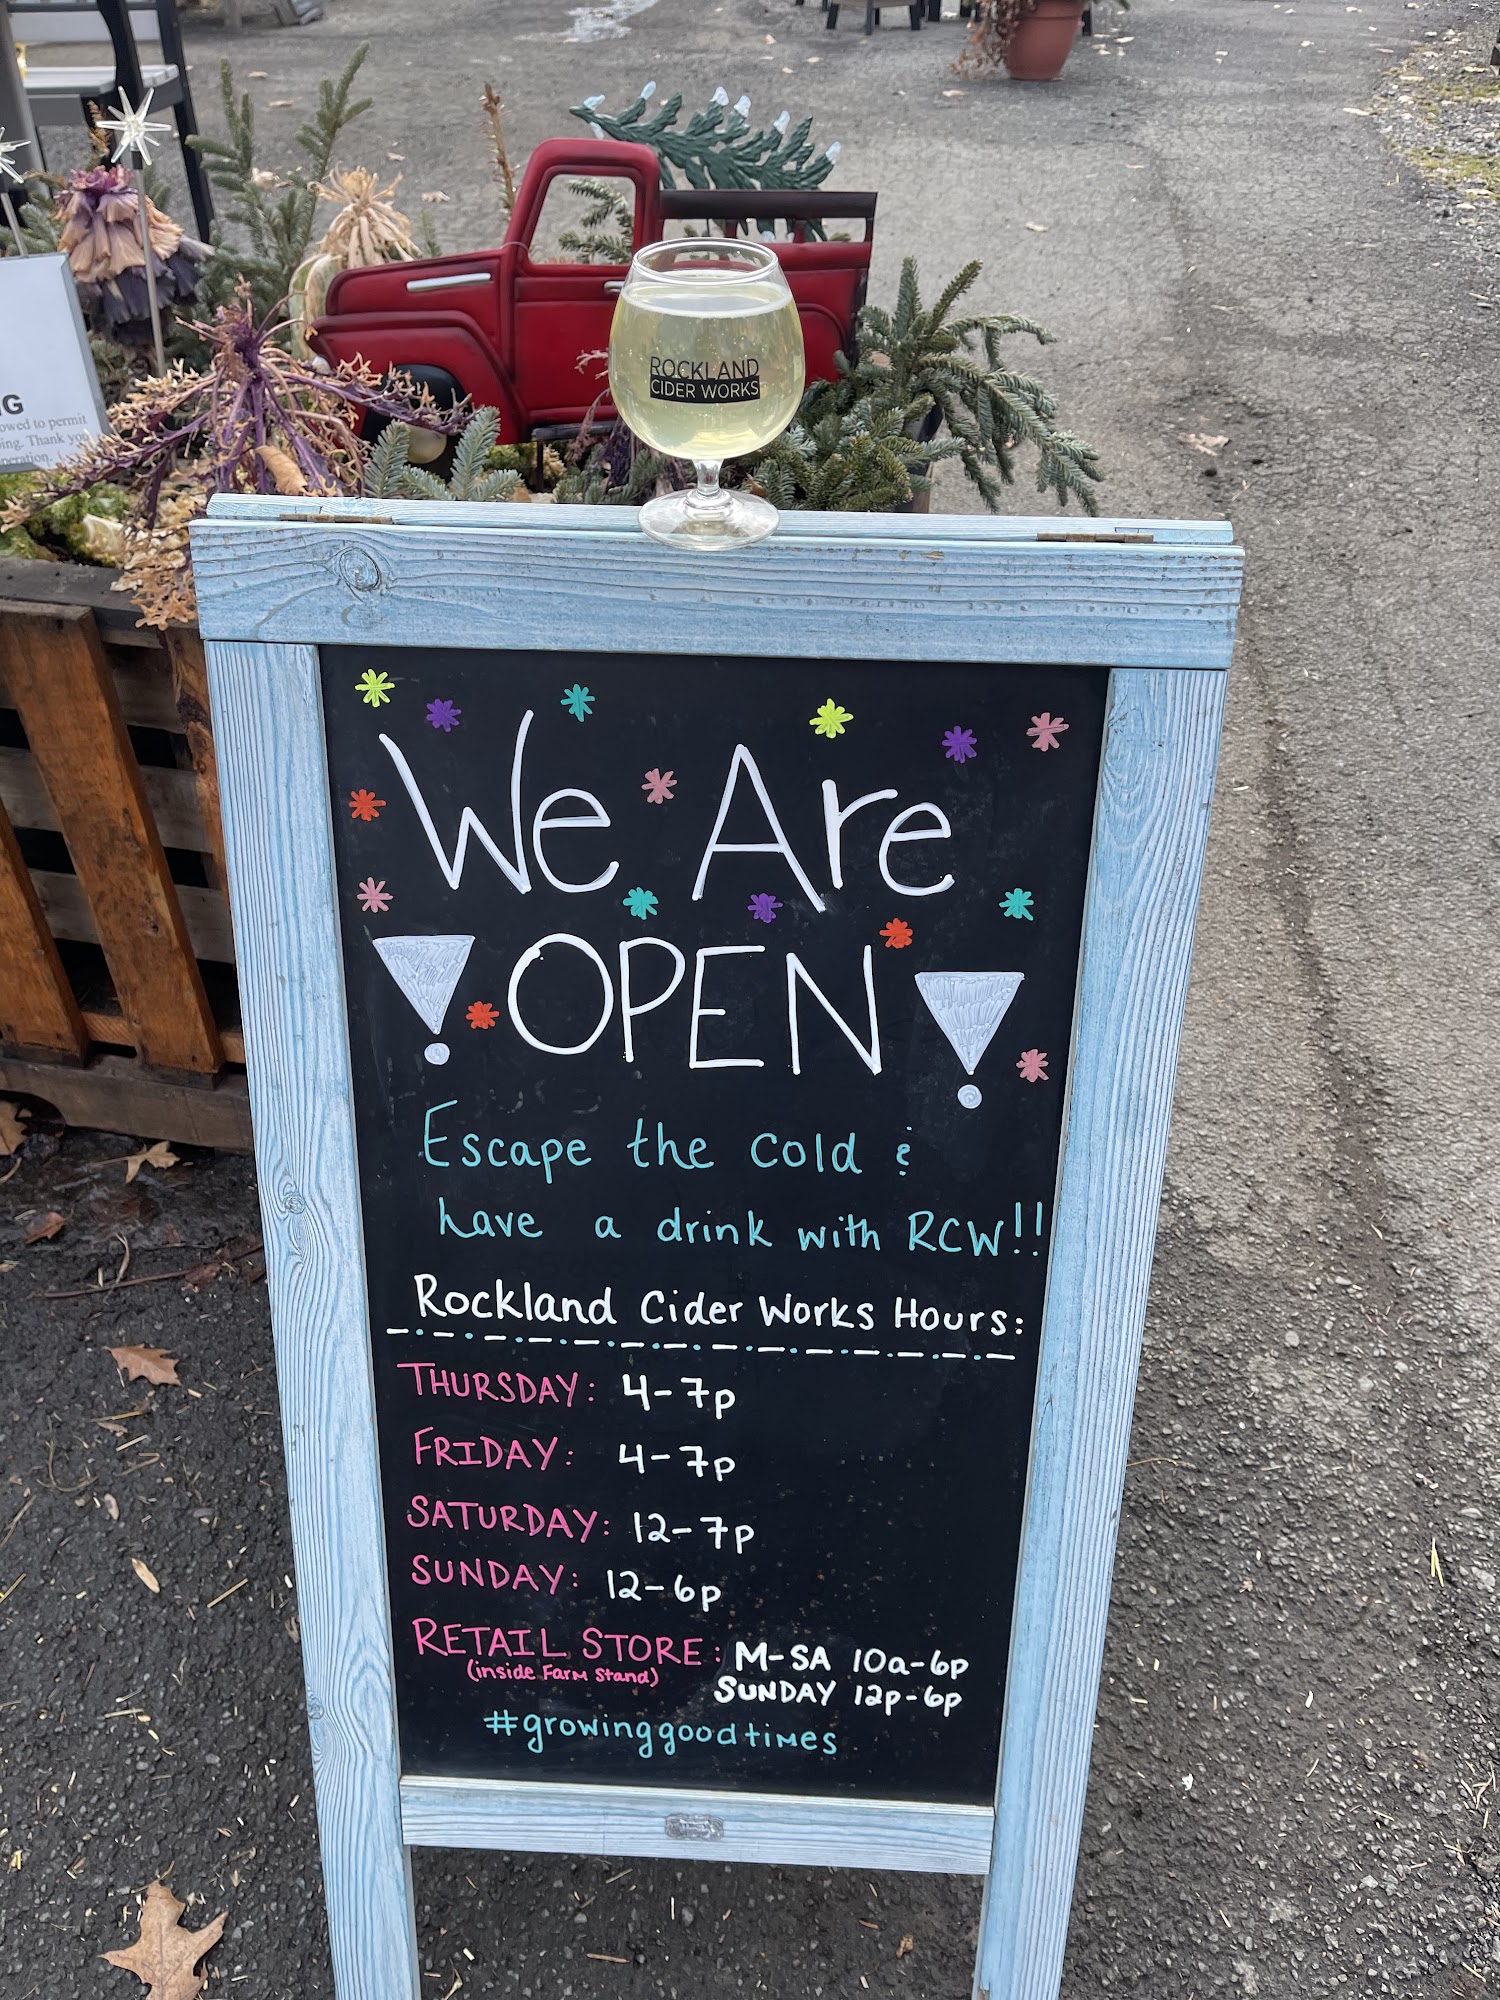 G
owed to permit
ing. Thank you
peration.
ROCKLAND
CIDER WORKS
We Are
! OPEN !
Escape the cold &
have a drink with RCW!!
Rockland Cider Works Hours:
THURSDAY: 4-7p
FRIDAY: 4-7p
SATURDAY: 12-7p
SUNDAY: 12-6p
RETAIL STORE: M-SA 10a-6p
(inside Farm Stand) SUNDAY 12p-6p
#growinggoodtimes